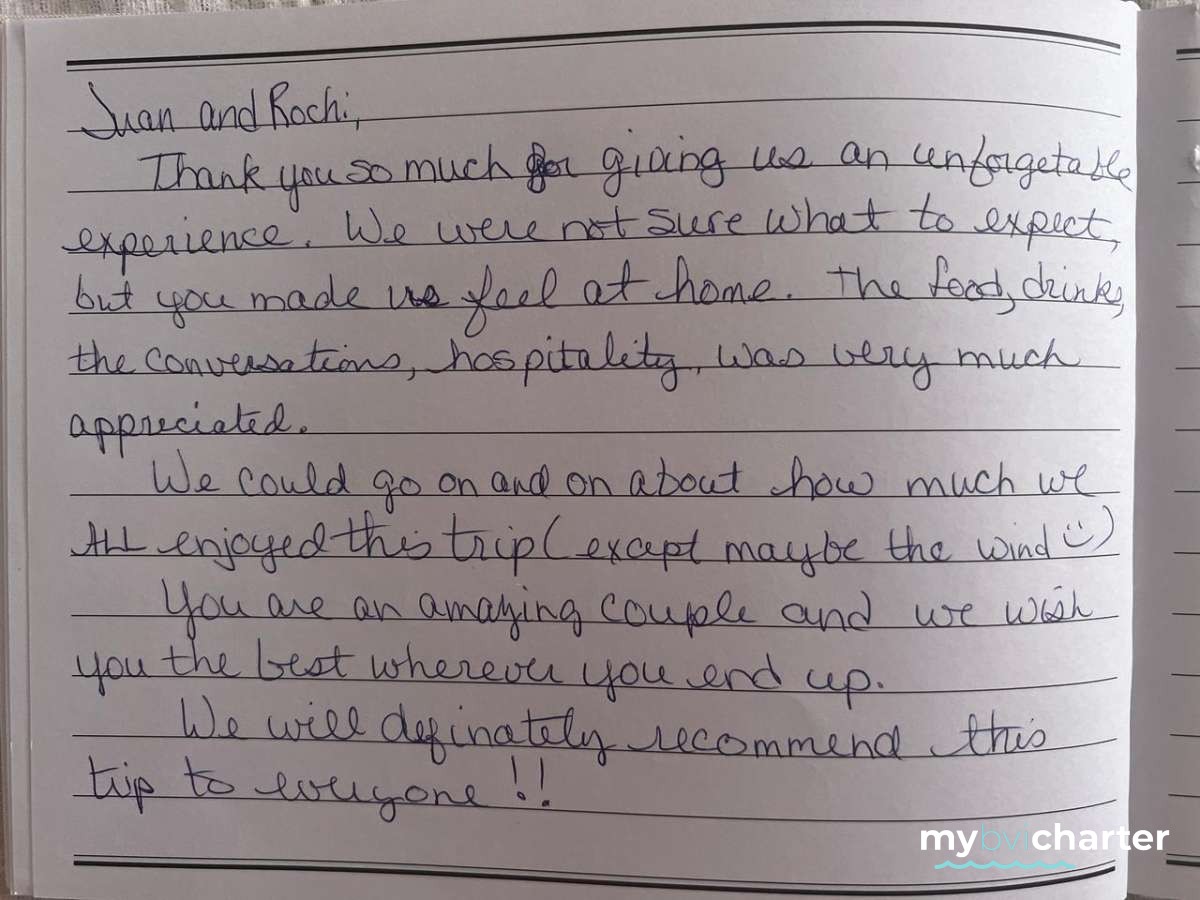 Juan and Rochi,
Thank you so much for giving us an unforgetable
experience. We were not sure what to expect,
but you made us feel at home. The food, drinks,
the conversations, hospitality, was very much
appreciated.
We could go on and on about how much we
ALL enjoyed this trip (except maybe the wind ☺)
You are an amazing couple and we wish
you the best wherever you end up.
We will definately recommend this
trip to everyone!!
mybvicharter